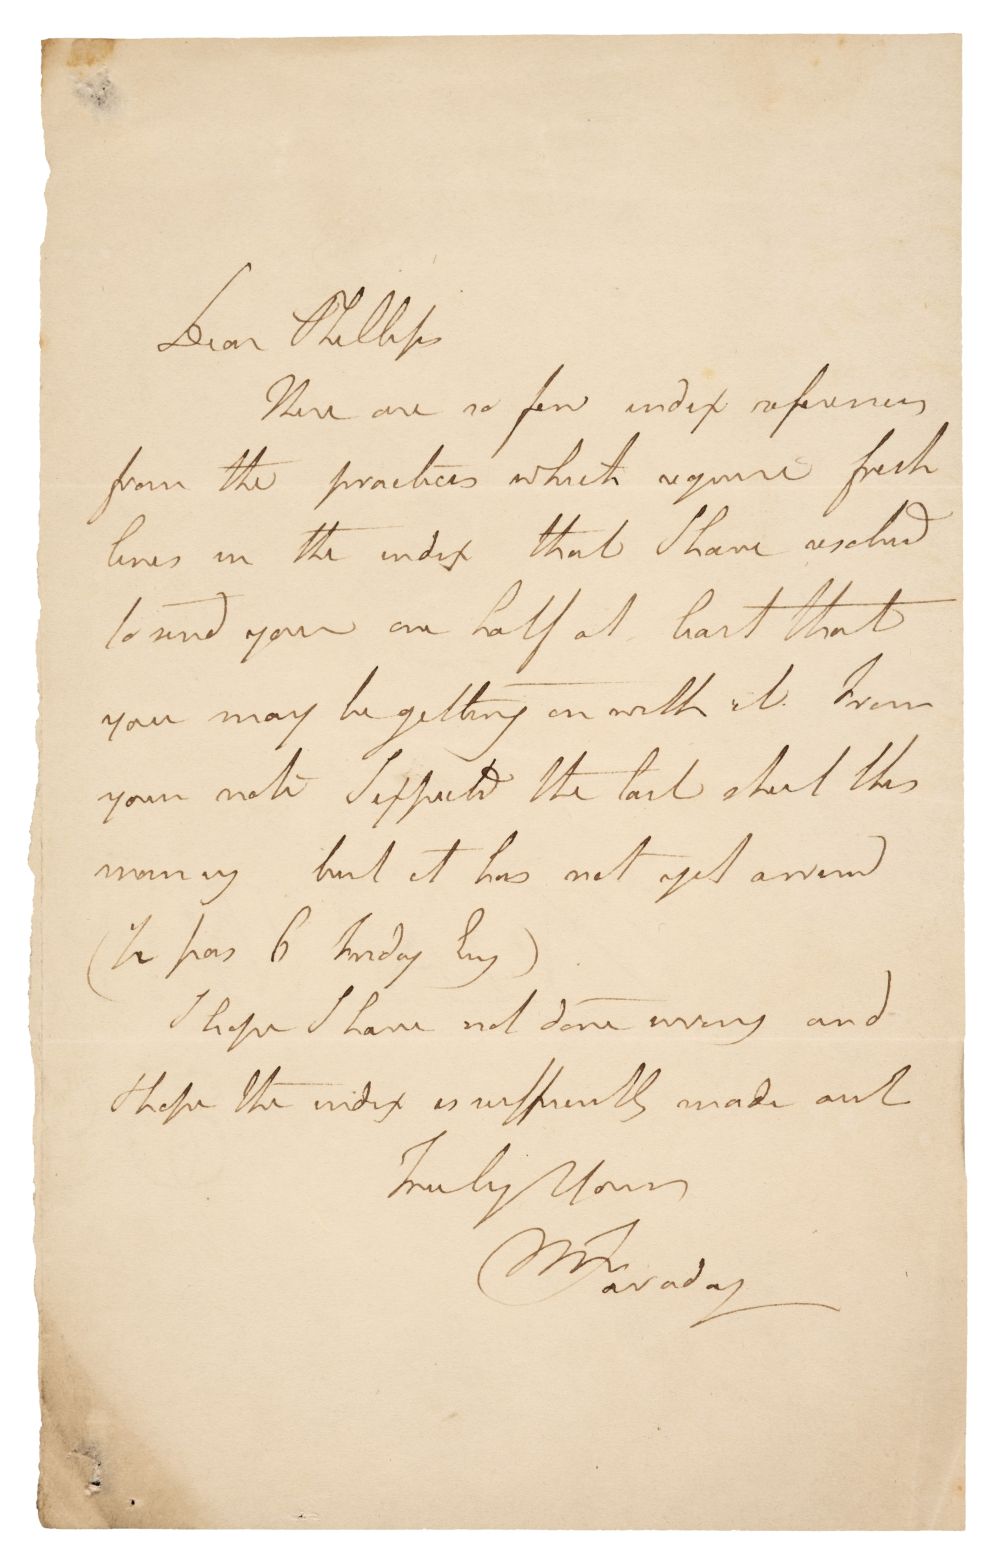 Dear Phillips
There are so few index references
from the practices which require fresh
lines in the index that I have resolved
to send you one half at least that
you may be getting on with it. From
your note I expected the last sheet this
morning but it has not yet arrived
(½ pas 6 Friday Evg)
I hope I have not done wrong and
I hope the index is sufficiently made out
Truly Yours
M Faraday